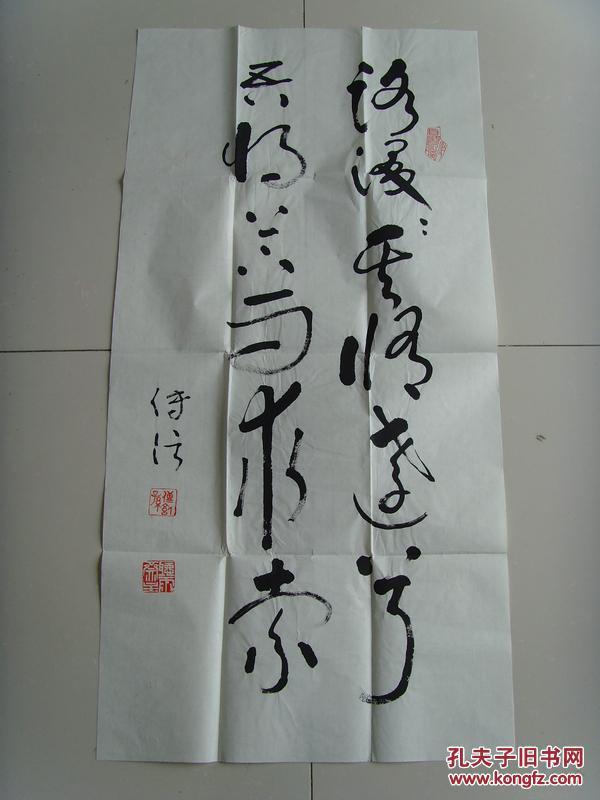 路漫漫其脩远兮
吾将上下而求索
孔夫子旧书网
www.kongfz.com